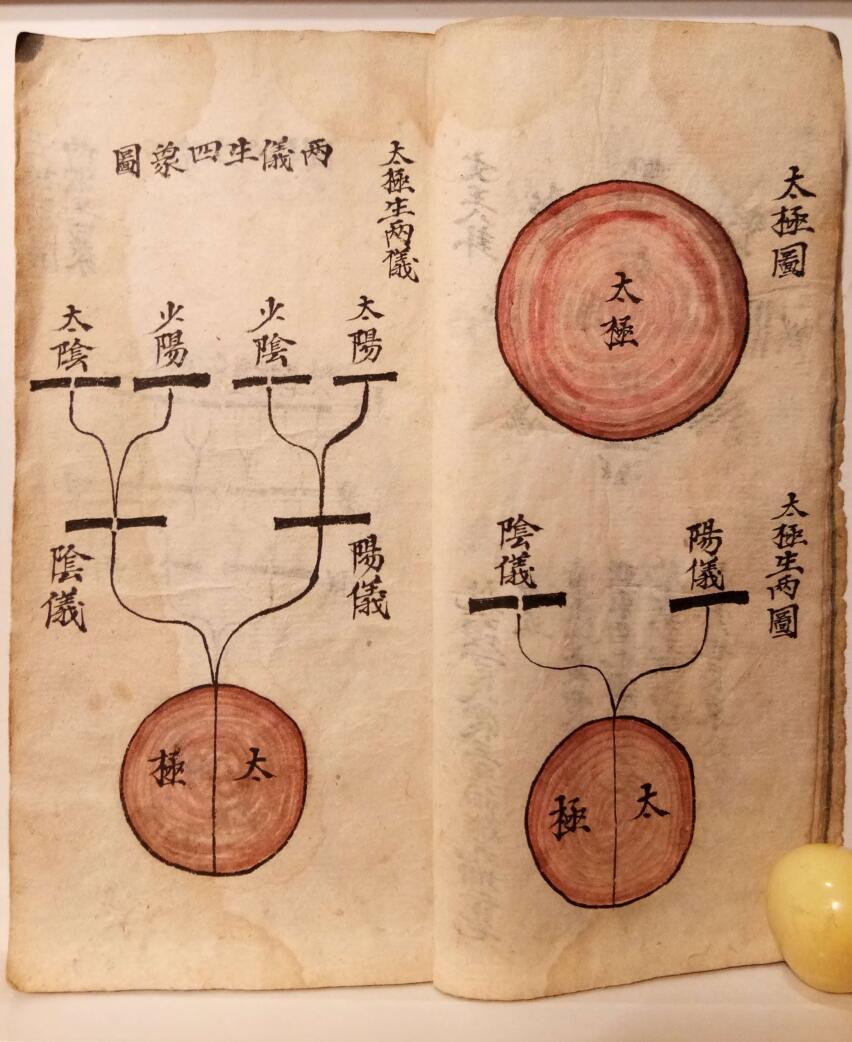 太極圖
太極
太極生兩圖
陽儀
陰儀
太極
太極生兩儀
兩儀生四象圖
太陽
少陰
少陽
太陰
陽儀
陰儀
太極